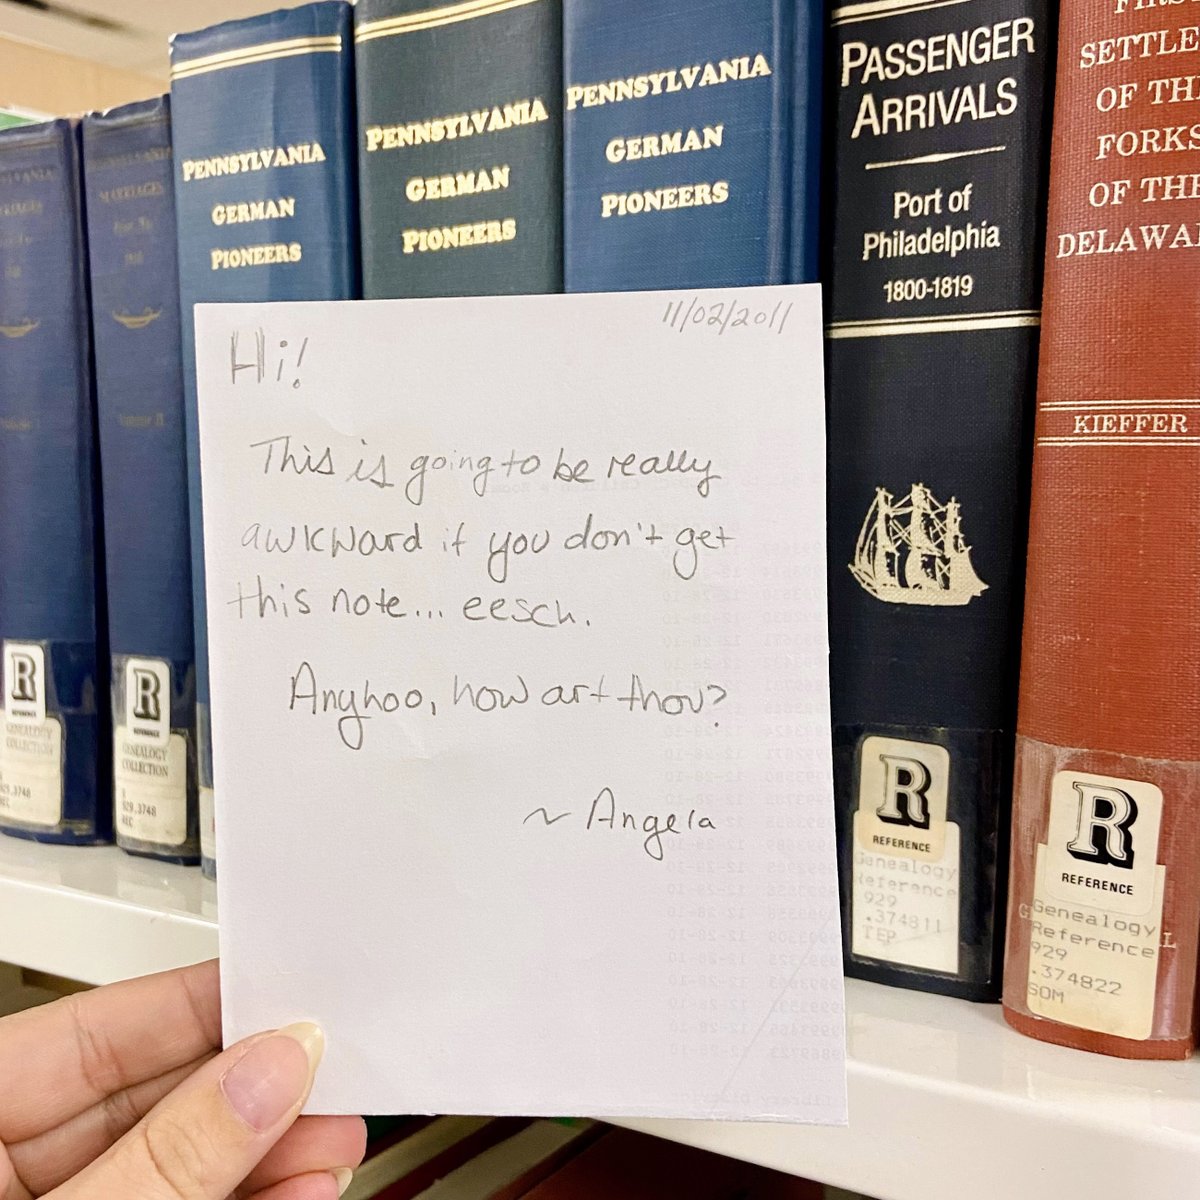 PENNSYLVANIA
GERMAN
PIONEERS
PENNSYLVANIA
GERMAN
PIONEERS
PENNSYLVANIA
GERMAN
PIONEERS
PASSENGER
ARRIVALS
Port of
Philadelphia
1800-1819
SETTLE
OF TH
FORKS
OF THE
DELAWA
KIEFFER
11/02/2011
Hi!
This is going to be really
awkward if you don't get
this note... eesch.
Anyhoo, how art thou?
~ Angela
R
REFERENCE
GENEALOGY
COLLECTION
R
REFERENCE
GENEALOGY
COLLECTION
929.3748
REC
R
REFERENCE
Genealogy
Reference
929
.374811
TEP
R
REFERENCE
Genealogy
Reference
929
.374822
SOM